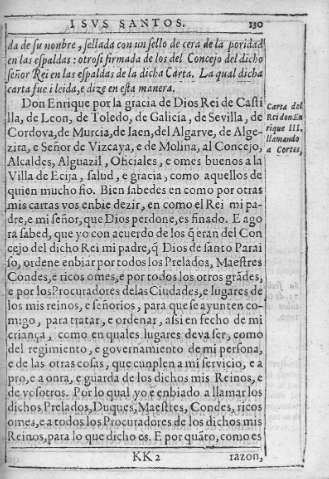 I SVS SANTOS. 130
da de su nonbre, sellada con un sello de cera de la poridad
en las espaldas: otrosi firmada de los del Concejo del dicho
señor Rei en las espaldas de la dicha Carta. La qual dicha
carta fue i leida, e dize en esta manera.
Don Enrique por la gracia de Dios Rei de Casti
lla, de Leon, de Toledo, de Galicia, de Sevilla, de
Cordova, de Murcia, de Iaen, del Algarve, de Alge-
zira, e Señor de Vizcaya, e de Molina, al Concejo,
Alcaldes, Alguazil, Oficiales, e omes buenos a la
Villa de Ecija, salud, e gracia, como aquellos de
quien mucho fio. Bien sabedes en como por otras
mis cartas vos enbie dezir, en como el Rei mi pa-
dre, e mi señor, que Dios perdone, es finado. E ago
ra sabed, que yo con acuerdo de los q̃ eran del Con
cejo del dicho Rei mi padre, q̃ Dios de santo Parai
so, ordene enbiar por todos los Prelados, Maestres
Condes, e ricos omes, e por todos los otros grãdes,
e por los Procuradores de las Ciudades, e lugares de
los mis reinos, e señorios, para que se ayunten co-
migo, para tratar, e ordenar, assi en fecho de mi
criança, como en quales lugares deva ser, como
del regimiento, e governamiento de mi persona,
e de las otras cosas, que cunplen a mi servicio, e a
pro, e a onra, e guarda de los dichos mis Reinos, e
de vosotros. Por lo qual yo e enbiado a llamar los
dichos Prelados, Duques, Maestres, Condes, ricos
omes, e a todos los Procuradores de los dichos mis
Reinos, para lo que dicho es. E por quãto, como es
KK 2 razon,
Carta del
Rei don En
rique III.
llamando
a Cortes,